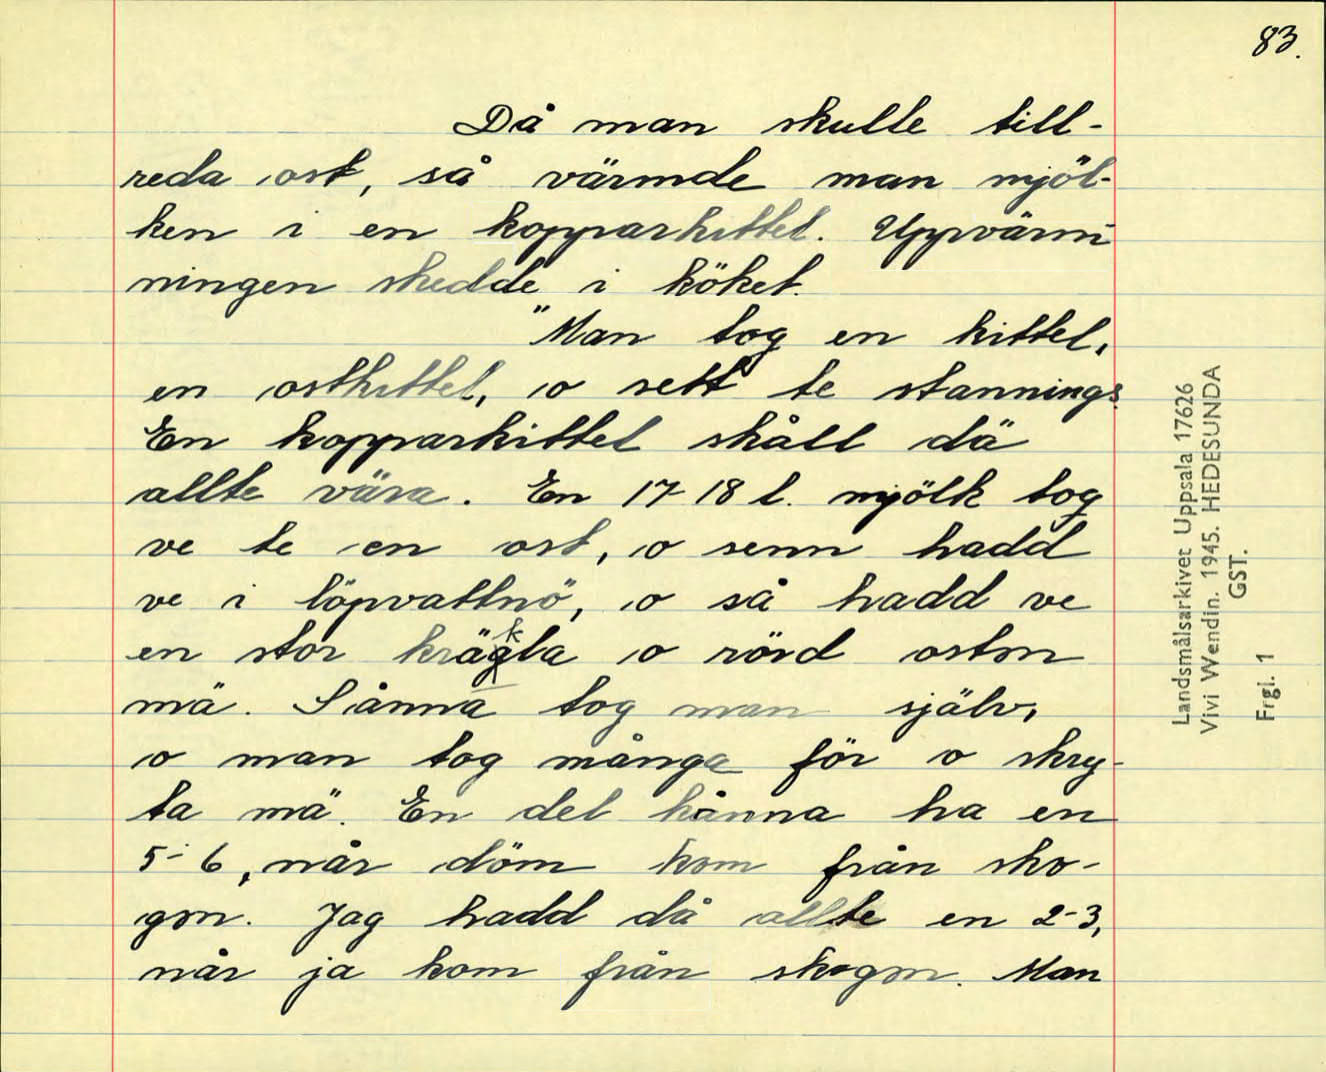 83.
Då man skulle till-
reda ost, så värmde man mjöl-
ken i en kopparkittel. Uppvärm-
ningen skedde i köket.
"Man tog en kittel,
en ostkittel, o sett te stannings.
En kopparkittel skåll dä
allte vära. En 17-18 l. mjölk tog
ve te en ost, o senn hadd
ve i löpvattnö, o så hadd ve
en stor kräkla o rörd ostn
mä. Sånna tog man själv,
o man tog många för o skry-
ta mä. En del kånna ha en
5-6, når döm kom från sko-
gen. Jag hadd då allte en 2-3,
når ja kom från skogen. Man
Landsmålsarkivet Uppsala 17626
Vivi Wendin. 1945. HEDESUNDA
GST.
Frgl. 1